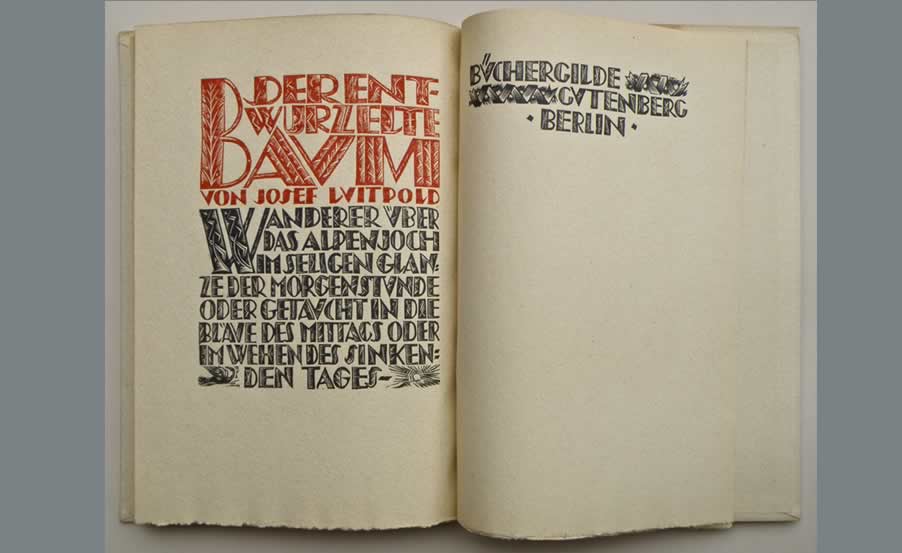 DER ENT-
WURZELTE
BAVM
VON JOSEF LVITPOLD
WANDERER ÜBER
DAS ALPENJOCH
IM SELIGEN GLAN-
ZE DER MORGENSTVNDE
ODER GETAVCHT IN DIE
BLÄVE DES MITTAGS ODER
IM WEHEN DES SINKEN-
DEN TAGES-
BÜCHERGILDE
GVTENBERG
· BERLIN ·